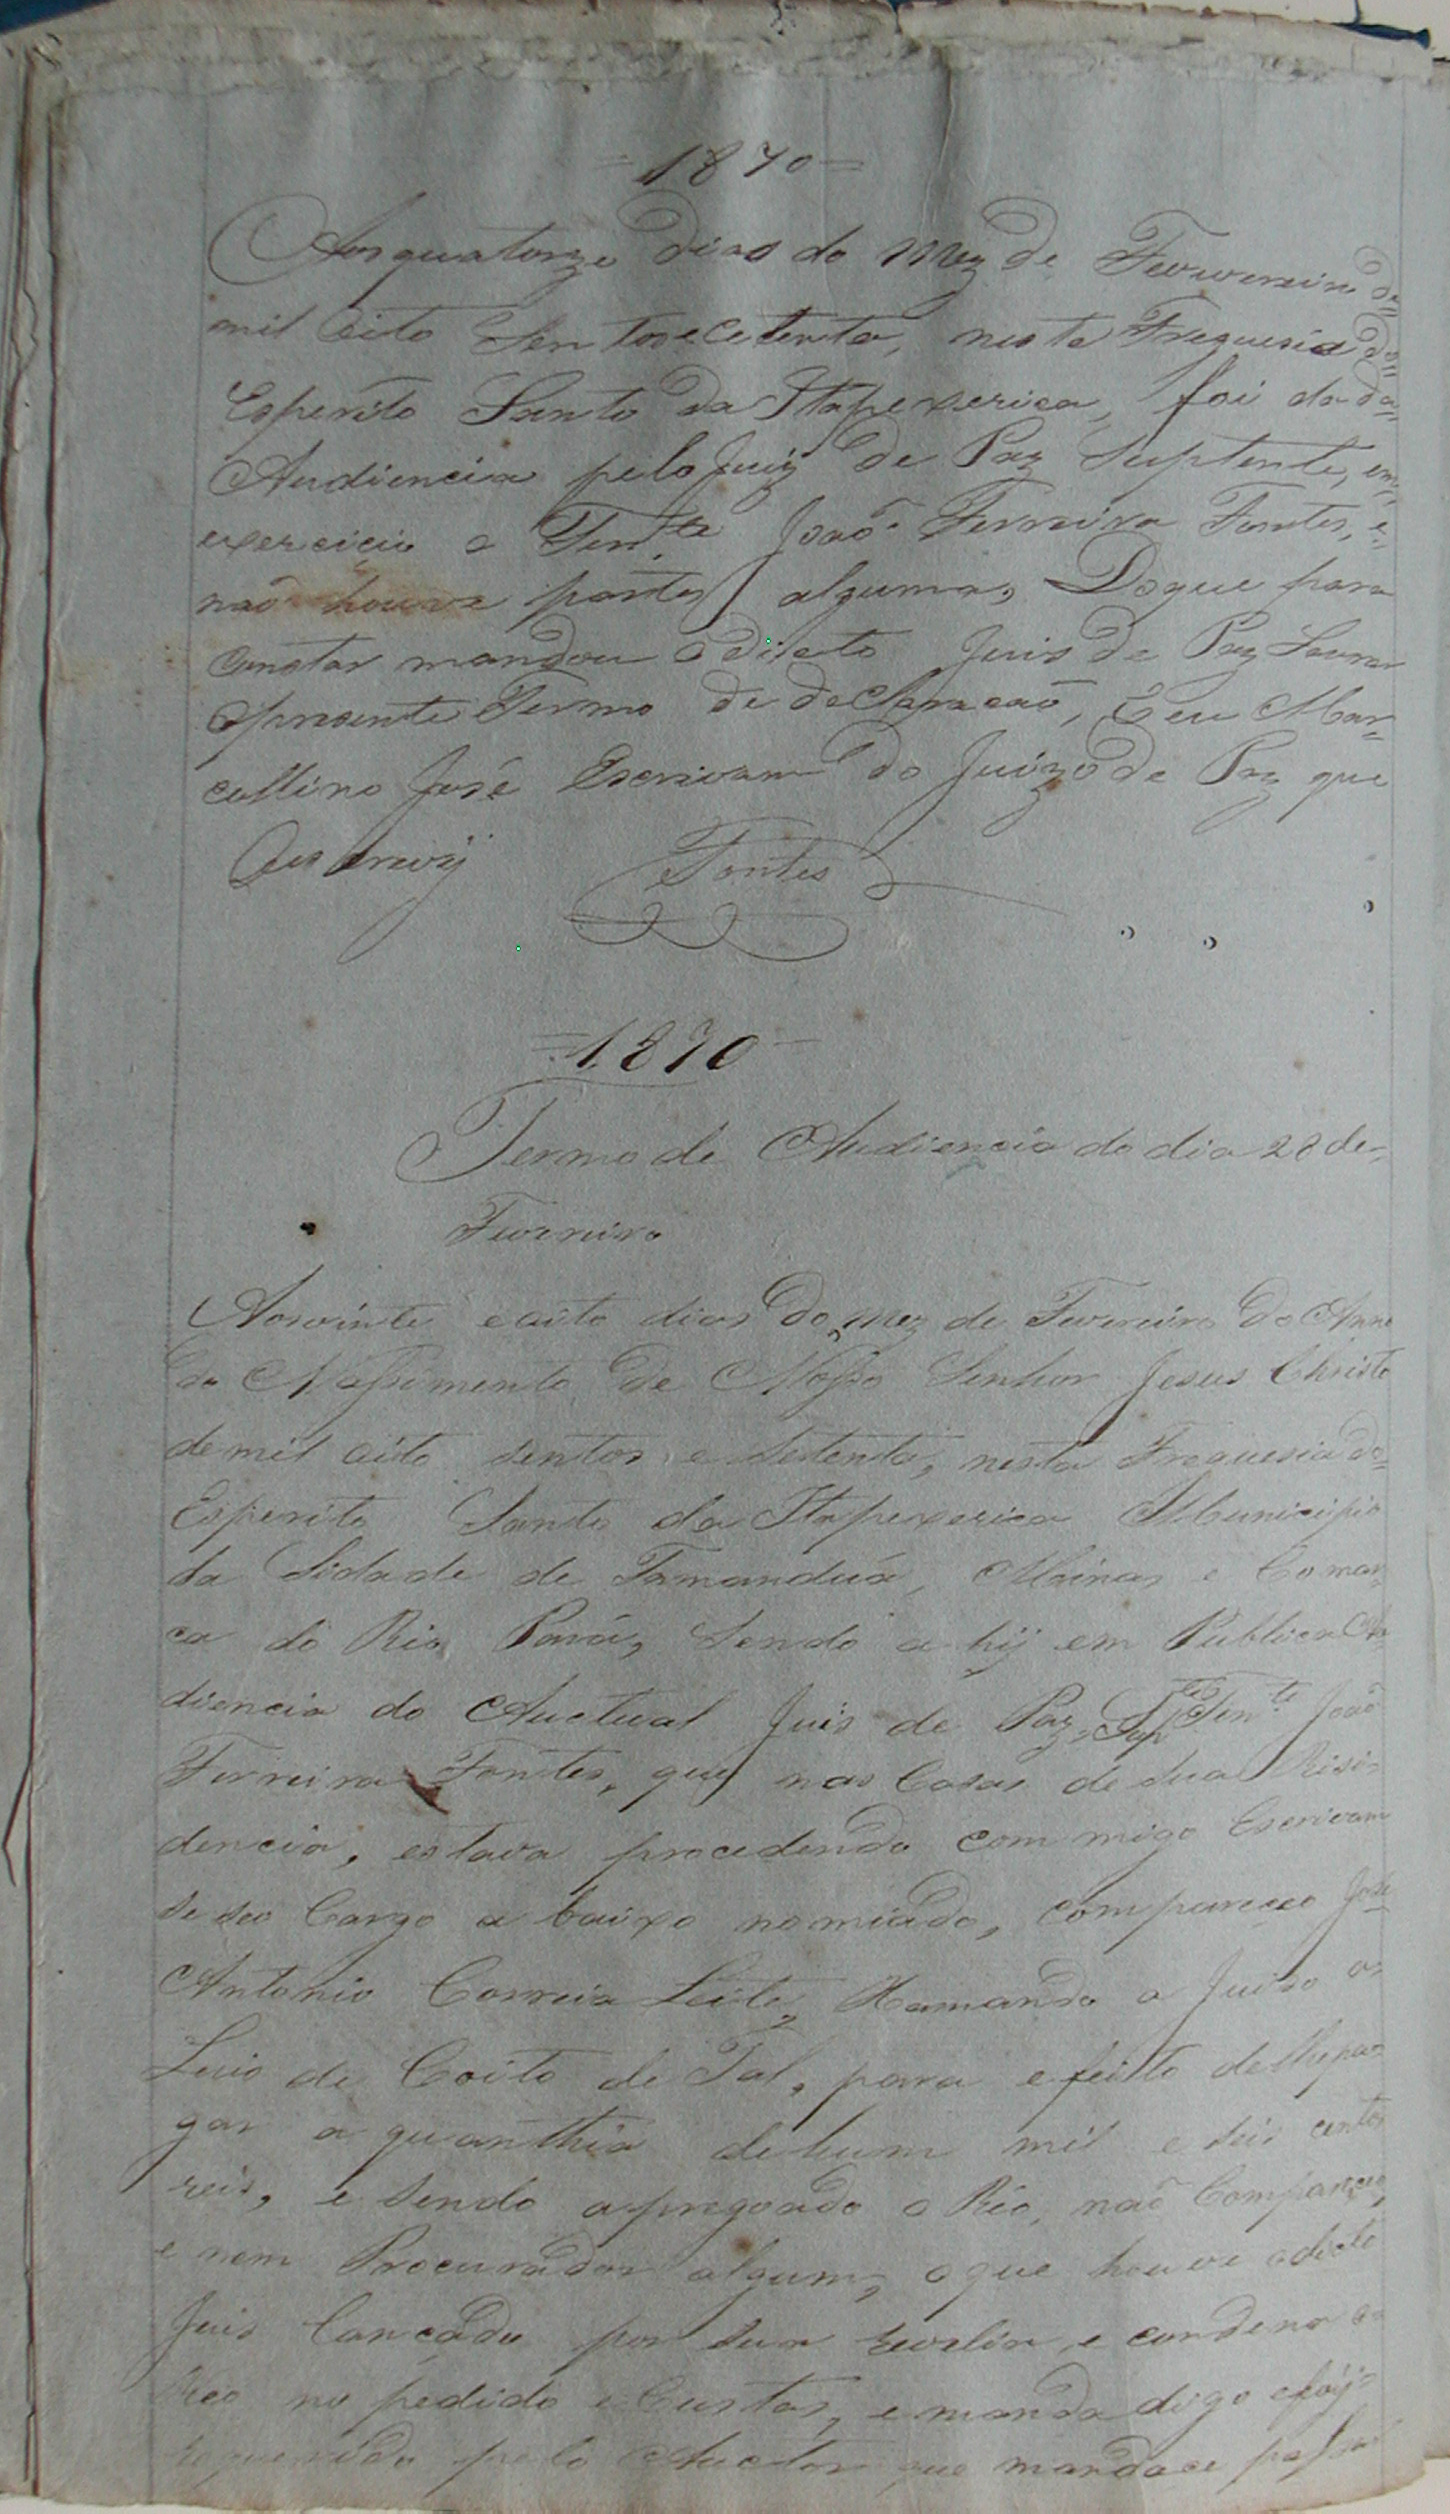 =1870=
Aos quatorze dias do Mez de Fevvereiro de
mil Oito Sentos e Cetenta, nesta Freguesia do
Esperito Santo da Itapexerica, foi dada
Audiencia pelo Juiz de Paz Suptente, em
exercicio o Ten.te João Ferreira Fontes, e
não houve partes algumas, Do que para
constar mandou o dicto Juis de Paz Lavrar
o presente Termo de declaração, E eu Mar-
cellino José Escrivam do Juizo de Paz que
Fontes
=1870-
Termo de Audiencia do dia 28 de
Fevereiro
Aos vinte e oito dias do Mez de Fevereiro do Anno
do Nassimento de Nosso Senhor Jesus Christo
de mil oito sentos e setenta, nesta Freguesia do
Esperito Santo da Itapexerica Municipio
da Sidade de Tamanduá, Minas e Comar-
ca do Rio Pará, Sendo a hij em Publica Au-
diencia do Auctual Juis de Paz Sup Ten.te João
Ferreira Fontes, que nas Casas de sua Risi-
dencia, estava procedendo com migo Escrivam
de seo Cargo a baixo nomiado, compareceo José
Antonio Correia Leite, Xamando a Juiso a
Luis de Coito de Tal, para e feito de lhe pa-
gar a quanthia de hum mil e seis centos
reis, e sendo apregoado o Réo, não Compareceo,
e nem Procurador algum, o que houve o dicto
Juis Lançado por sua revelia, e condena o
Reo no pedido e Custas, e manda digo e foij
requerido pelo Auctor que mandace passar